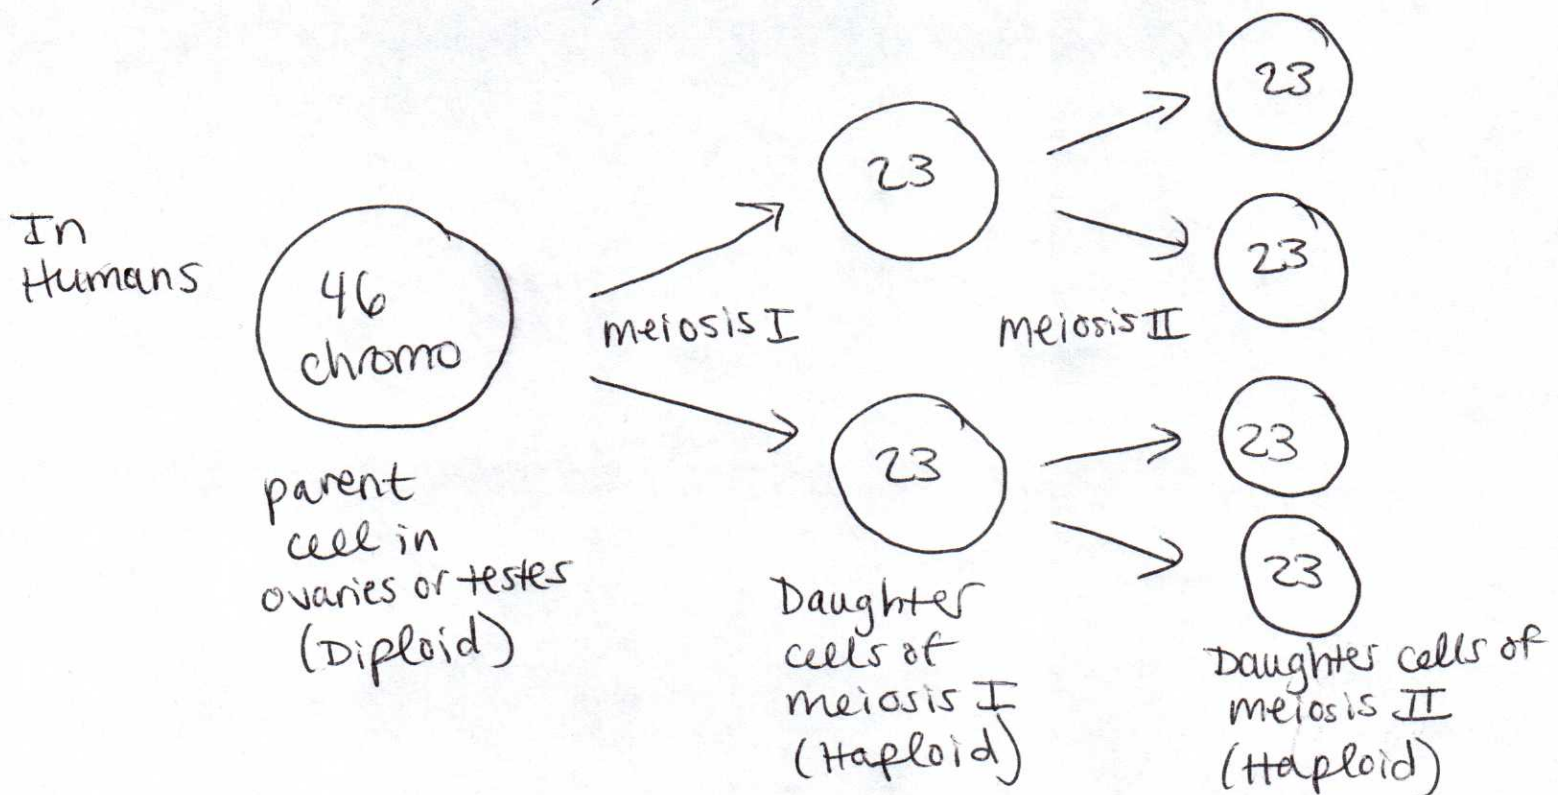 In
Humans
46
chromo
parent
cell in
ovaries or testes
(Diploid)
meiosis I
23
23
Daughter
cells of
meiosis I
(Haploid)
meiosis II
23
23
23
23
Daughter cells of
meiosis II
(Haploid)